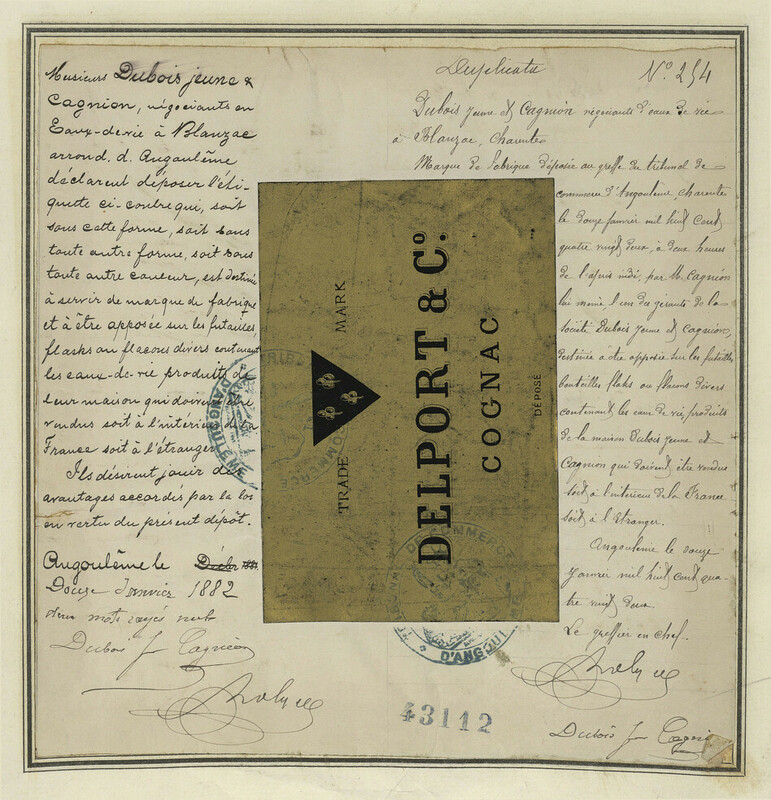 Messieurs Dubois jeune &
Cagnion, négociants en
Eaux-de-vie à Blanzac
arrond. d. Angoulême
déclarent déposer l'éti-
quette ci-contre qui, soit
sous cette forme, soit sous
toute autre forme, soit sous
toute autre couleur, est destinée
à servir de marque de fabrique
et à être apposée sur les futailles
flasks ou flacons divers contenant
les eaux-de-vie produits de
leur maison qui doivent être
vendus soit à l'intérieur de la
France soit à l'étranger
Ils désirent jouir des
avantages accordés par la loi
en vertu du présent dépôt.
Angoulême le
Douze Janvier 1882
deux mots rayés nuls
Dubois Je Cagnion
TRADE MARK
DELPORT & Co.
COGNAC
DÉPOSÉ
Duplicata
No. 254
Dubois jeune et Cagnion négociants d'eaux de vie
à Blanzac, Charente
Marque de fabrique déposée au greffe du tribunal de
commerce d'Angoulême, Charente
le douze janvier mil huit cent
quatre vingt deux, à deux heures
de l'après midi, par M. Cagnion
lui même l'un des gérants de la
Société Dubois jeune et Cagnion,
destinée à être apposée sur les futailles
bouteilles flasks ou flacons divers
contenant les eaux de vie, produits
de la maison Dubois jeune et
Cagnion qui doivent être vendus
soit à l'intérieur de la France
soit à l'Etranger.
Angoulême le douze
Janvier mil huit cent qua-
tre vingt deux.
Le greffier en chef.
Dubois Je Cagnion
DE COMMERCE
D'ANGOULÊME
43112